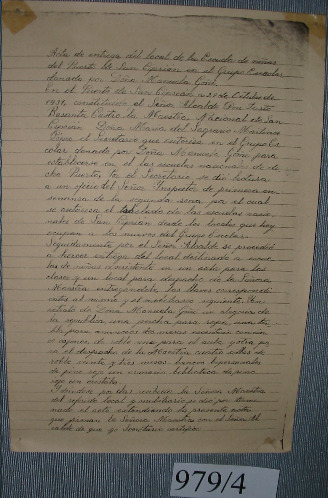 Acta de entrega del local de la Escuela de niñas
del Puerto de San Ciprian en el Grupo Escolar
donado por Doña Manuela Goñi
En el Puerto de San Ciprian, a 24 de Octubre de
constituido el Señor Alcalde Don Justo
Basanta Castro, la Maestra Nacional de San
Ciprian Doña Maria del Sagrario
el Secretario que autoriza en el Grupo Es
colar donado por Doña Manuela Goñi para
establecerse en el las escuelas nacionales de di
cho Puerto, por el Secretario se dio lectura
a un oficio del Señor Inspector de primera en
señanza de la segunda zona por el cual
se autoriza el traslado de las escuelas nacio
nales de San Ciprian desde los locales que hoy
ocupan a los nuevos del Grupo Escolar.
Seguidamente por el Señor Alcalde se procedió
a hacer entrega del local destinado a escue
la de niñas consistente en un aula para las
clases y un local para despacho de la Señora
Maestra entregandole las llaves correspondi
entes al mismo y el mobiliario siguiente: Un
retrato de Doña Manuela Goñi un alegoria de
la república, una percha para ropa,
de pino rojo con armario biblioteca de pino
rojo con cristales
del referido local y mobiliario se dio por termi
nado el acto extendiendo la presente acta
que firman la Señora Maestra con el Señor Al
calde de que yo Secretario certifico.
979/4